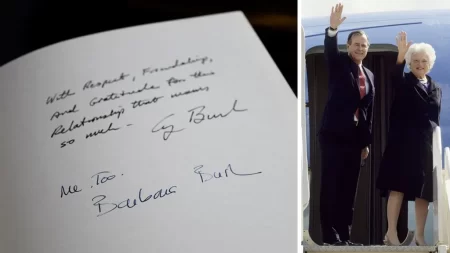 With Respect, Friendship,
And Gratitude for this
Relationship that means
so much -
Gg Bush
Me Too.
Barbara Bush